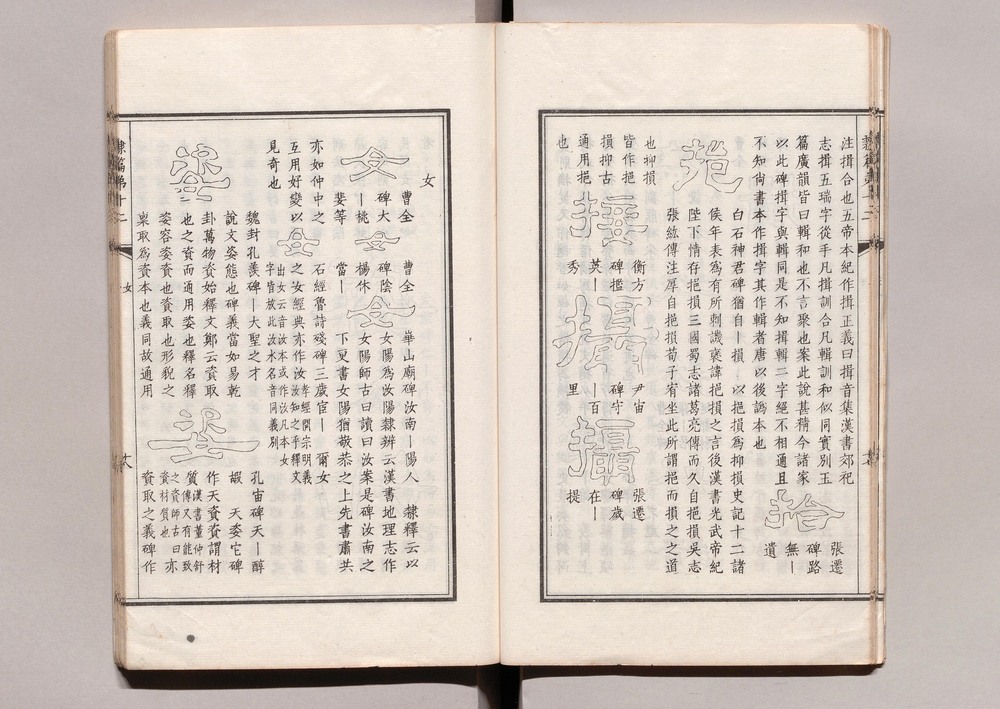 注揖合也五帝本紀作揖正義曰揖音集漢書郊祀
志揖五瑞字從手凡揖訓合凡輯訓和似同實別玉
篇廣韻皆曰輯和也不言聚也案此說甚精今諸家
以此碑揖字與輯同是不知揖輯二字絕不相通且
不知尙書本作揖字其作輯者唐以後譌本也
拾
張遷
碑路
無｜
遺
挹
白石神君碑猶自｜損｜以挹損為抑損史記十二諸
侯年表為有所刺譏襃諱挹損之言後漢書光武帝紀
陛下情存挹損三國蜀志諸葛亮傳而久自挹損吳志
張紘傳注厚自挹損荀子宥坐此所謂挹而損之之道
也抑損
皆作挹
損抑古
通用挹
也
衡方
碑攬
英｜
秀
攝
尹宙
碑守
｜百
里
攝
張遷
碑歲
在｜
提
女
女
曹全
碑大
｜桃
斐等
女
曹全
碑陰
楊休
當｜
女
華山廟碑汝南｜陽人 隸釋云以
女陽為汝陽隸辨云漢書地理志作
女陽師古曰讀曰汝案是碑汝南之
下更書女陽猶敬恭之上先書肅共
亦如仲中之
互用好變以
見奇也
女
石經魯詩殘碑三歲宦｜ 爾女
之女經典亦作汝孝經開宗明義
汝知之乎釋文
出女云音汝本或作汝凡本女
字皆放此汝水名音同義別
姿
魏封孔羨碑｜大聖之才
說文姿態也碑義當如易乾
卦萬物資始釋文鄭云資取
也之資而通用姿也釋名釋
姿容姿也資取也形貌之
稟取為資本也義同故通用
姿
孔宙碑天｜醇
嘏 天姿它碑
作天資資謂材
質漢書董仲舒
傳又有能致
之資師古曰
資材質也亦
資取之義碑作
隸篇第十二
女